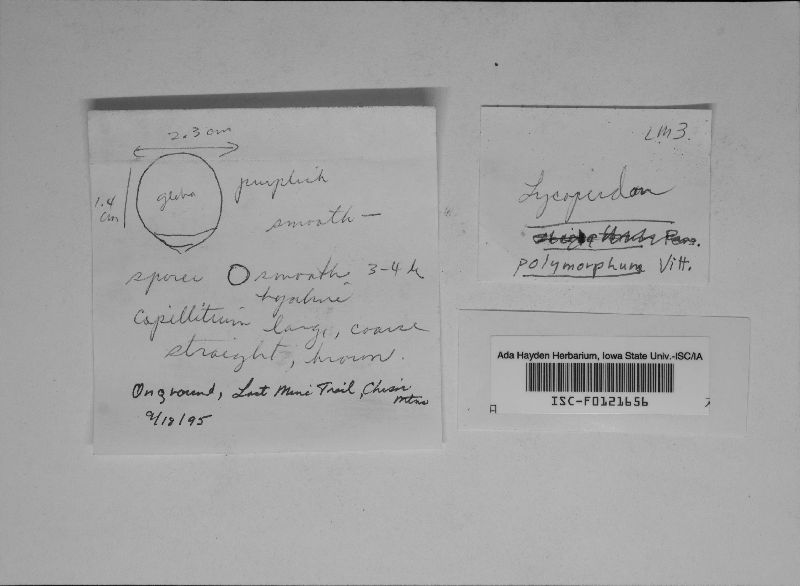 2.3 cm
1.4
cm
gleba
purplish
smooth —
spores O smooth 3-4 µ
hyaline
Capillitium large, coarse
straight, brown.
On ground, Lost Mine Trail, Chisos
Mtns
9/18/95
LM3.
Lycoperdon
Pers.
polymorphum Vitt.
Ada Hayden Herbarium, Iowa State Univ.-ISC/IA
ISC-F0121656